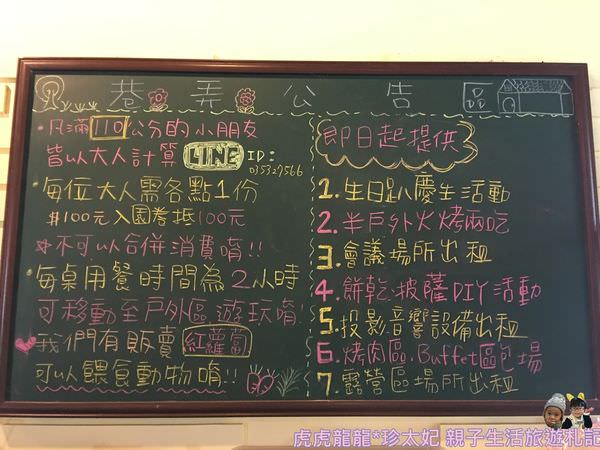 巷弄公告區
•凡滿110公分的小朋友
皆以大人計算 LINE ID:
035327566
•每位大人需各點1份
$100元入園券抵100元
*不可以合併消費唷!!
•每桌用餐時間為2小時
可移動至戶外區遊玩唷!
我們有販賣紅蘿蔔
可以餵食動物唷!!
即日起提供
1.生日趴慶生活動
2.半戶外火烤兩吃
3.會議場所出租
4.餅乾.披薩DIY活動
5.投影音響設備出租
6.烤肉區.Buffet區包場
7.露營區場所出租
虎虎龍龍*珍太妃 親子生活旅遊札記